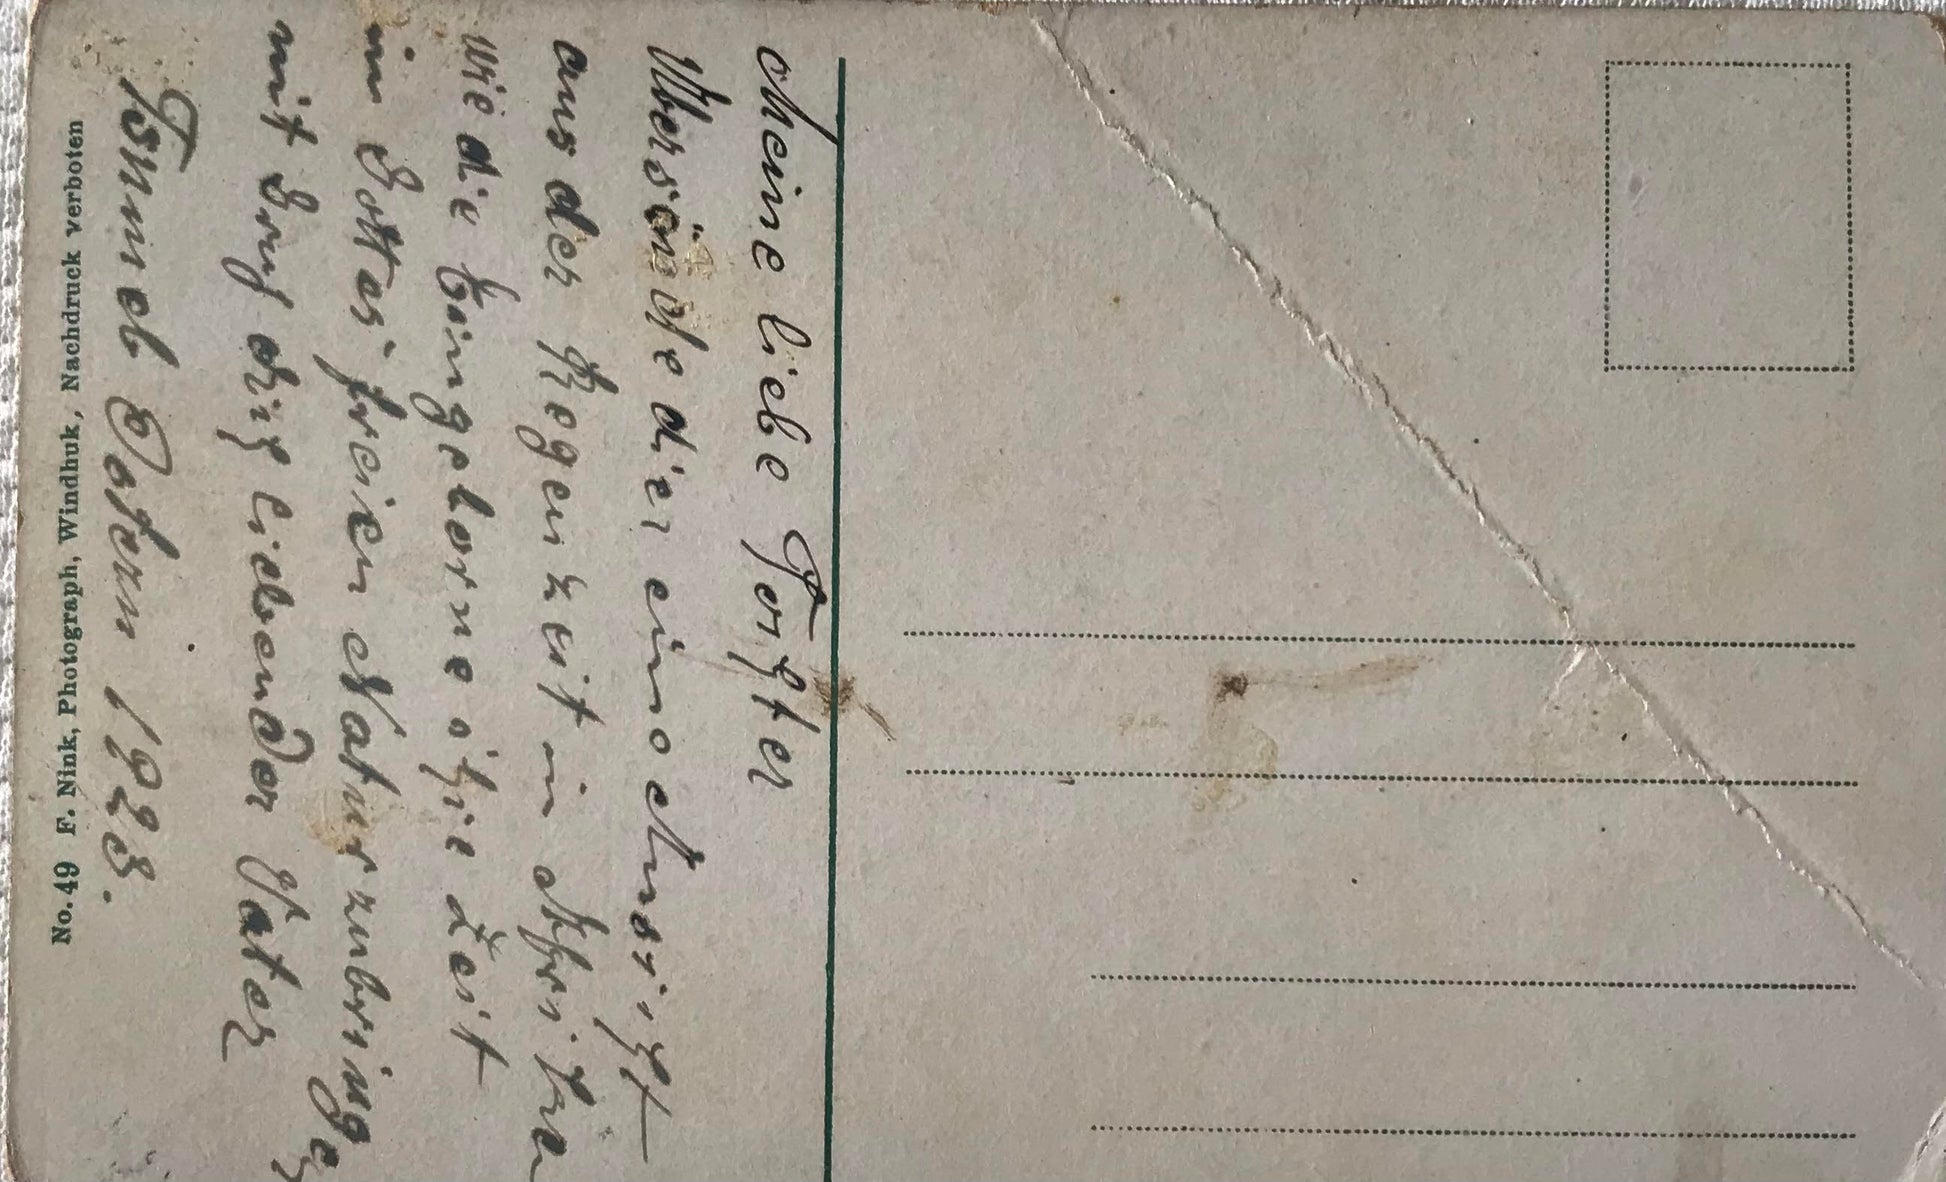 Meine liebe Tochter
Übersände dir eine Ansicht
aus der Regenzeit in Afrika
wie die Eingeborne ihre Zeit
in Gottes freien Natur zubringe
mit Gruß dein liebender Vater
Ostern 1923.
No. 49 F. Nink, Photograph, Windhuk, Nachdruck verboten